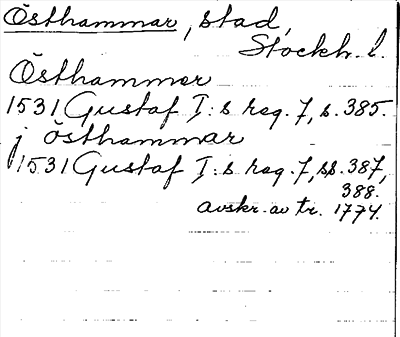 Östhammar, stad,
Stockh. l.
Östhammer
1531 Gustaf I:s reg. 7, s. 385.
j östhammar
1531 Gustaf I:s reg. 7, ss. 387,
388.
avskr. av tr. 1774.